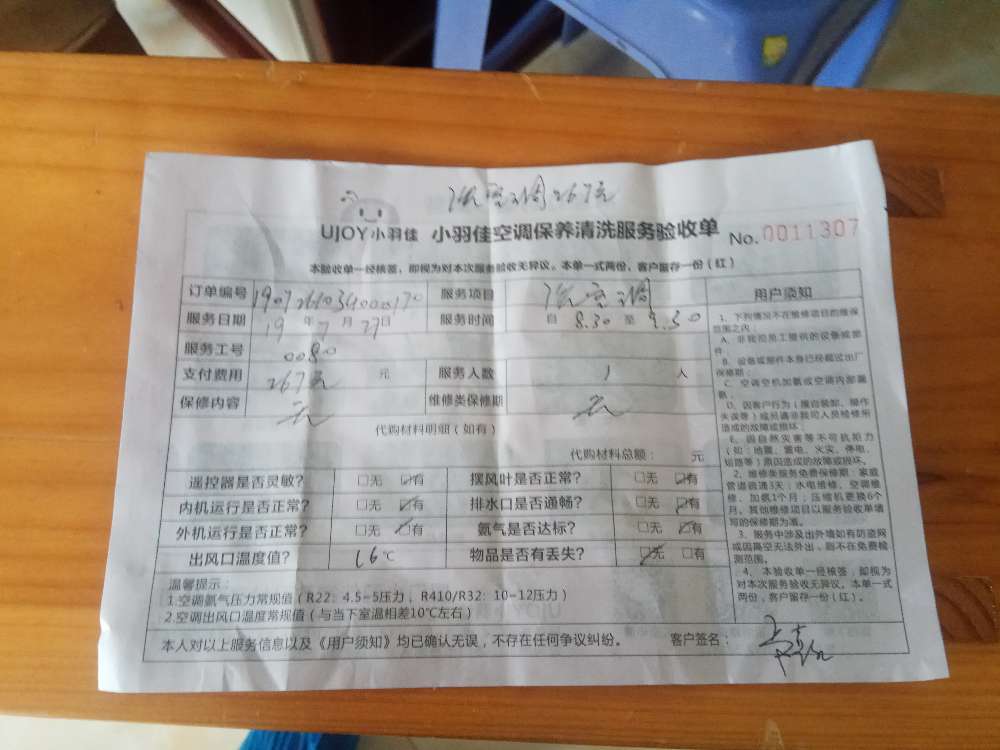 洗空调267元
UJOY小羽佳 小羽佳空调保养清洗服务验收单 No.0011307
本验收单一经核签，即视为对本次服务验收无异议。本单一式两份，客户留存一份（红）
订单编号 服务项目 洗空调
服务日期 19年7月27日 服务时间 自8.30至9.30
服务工号 0080
支付费用 267元 元 服务人数 1人
保修内容 无 维修类保修期 无
代购材料明细（如有）
代购材料总额： 元
遥控器是否灵敏？ □无 ☑有 摆风叶是否正常？ □无 ☑有
内机运行是否正常？ □无 ☑有 排水口是否通畅？ □无 ☑有
外机运行是否正常？ □无 ☑有 氨气是否达标？ □无 ☑有
出风口温度值？ 16℃ 物品是否有丢失？ ☑无 □有
温馨提示：
1.空调氨气压力常规值（R22：4.5-5压力，R410/R32：10-12压力）
2.空调出风口温度常规值（与当下室温相差10℃左右）
本人对以上服务信息以及《用户须知》均已确认无误，不存在任何争议纠纷。 客户签名：
用户须知
1、下列情况不在维修项目的维保
范围之内：
A、非我司员工提供的设备或部
件；
B、设备或部件本身已经超过出厂
保修期；
C、空调空机加氨或空调内部漏
氨；
D、因客户行为（擅自装卸、操作
失误等）或另请非我司人员检修所
造成的故障或损坏；
E、因自然灾害等不可抗拒力
（如：地震、雷电、火灾、停电、
短路等）原因造成的故障或损坏。
2、维修类服务免费保修期：家庭
管道疏通3天；水电维修、空调维
修、加氨1个月；压缩机更换6个
月。其他维修项目以服务验收单填
写的保修期为准。
3、服务中涉及出外墙如有防盗网
或因隔空无法外出，则不在免费检
测范围。
4、本验收单一经核签，即视为
对本次服务验收无异议。本单一式
两份，客户留存一份（红）。